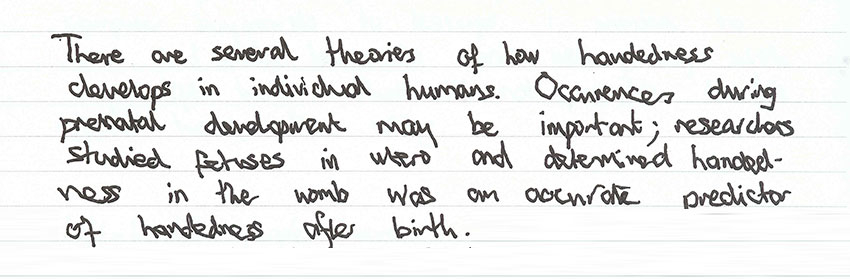 There are several theories of how handedness
develops in individual humans. Occurrences during
prenatal development may be important; researchers
studied fetuses in utero and determined handed-
ness in the womb was an accurate predictor
of handedness after birth.